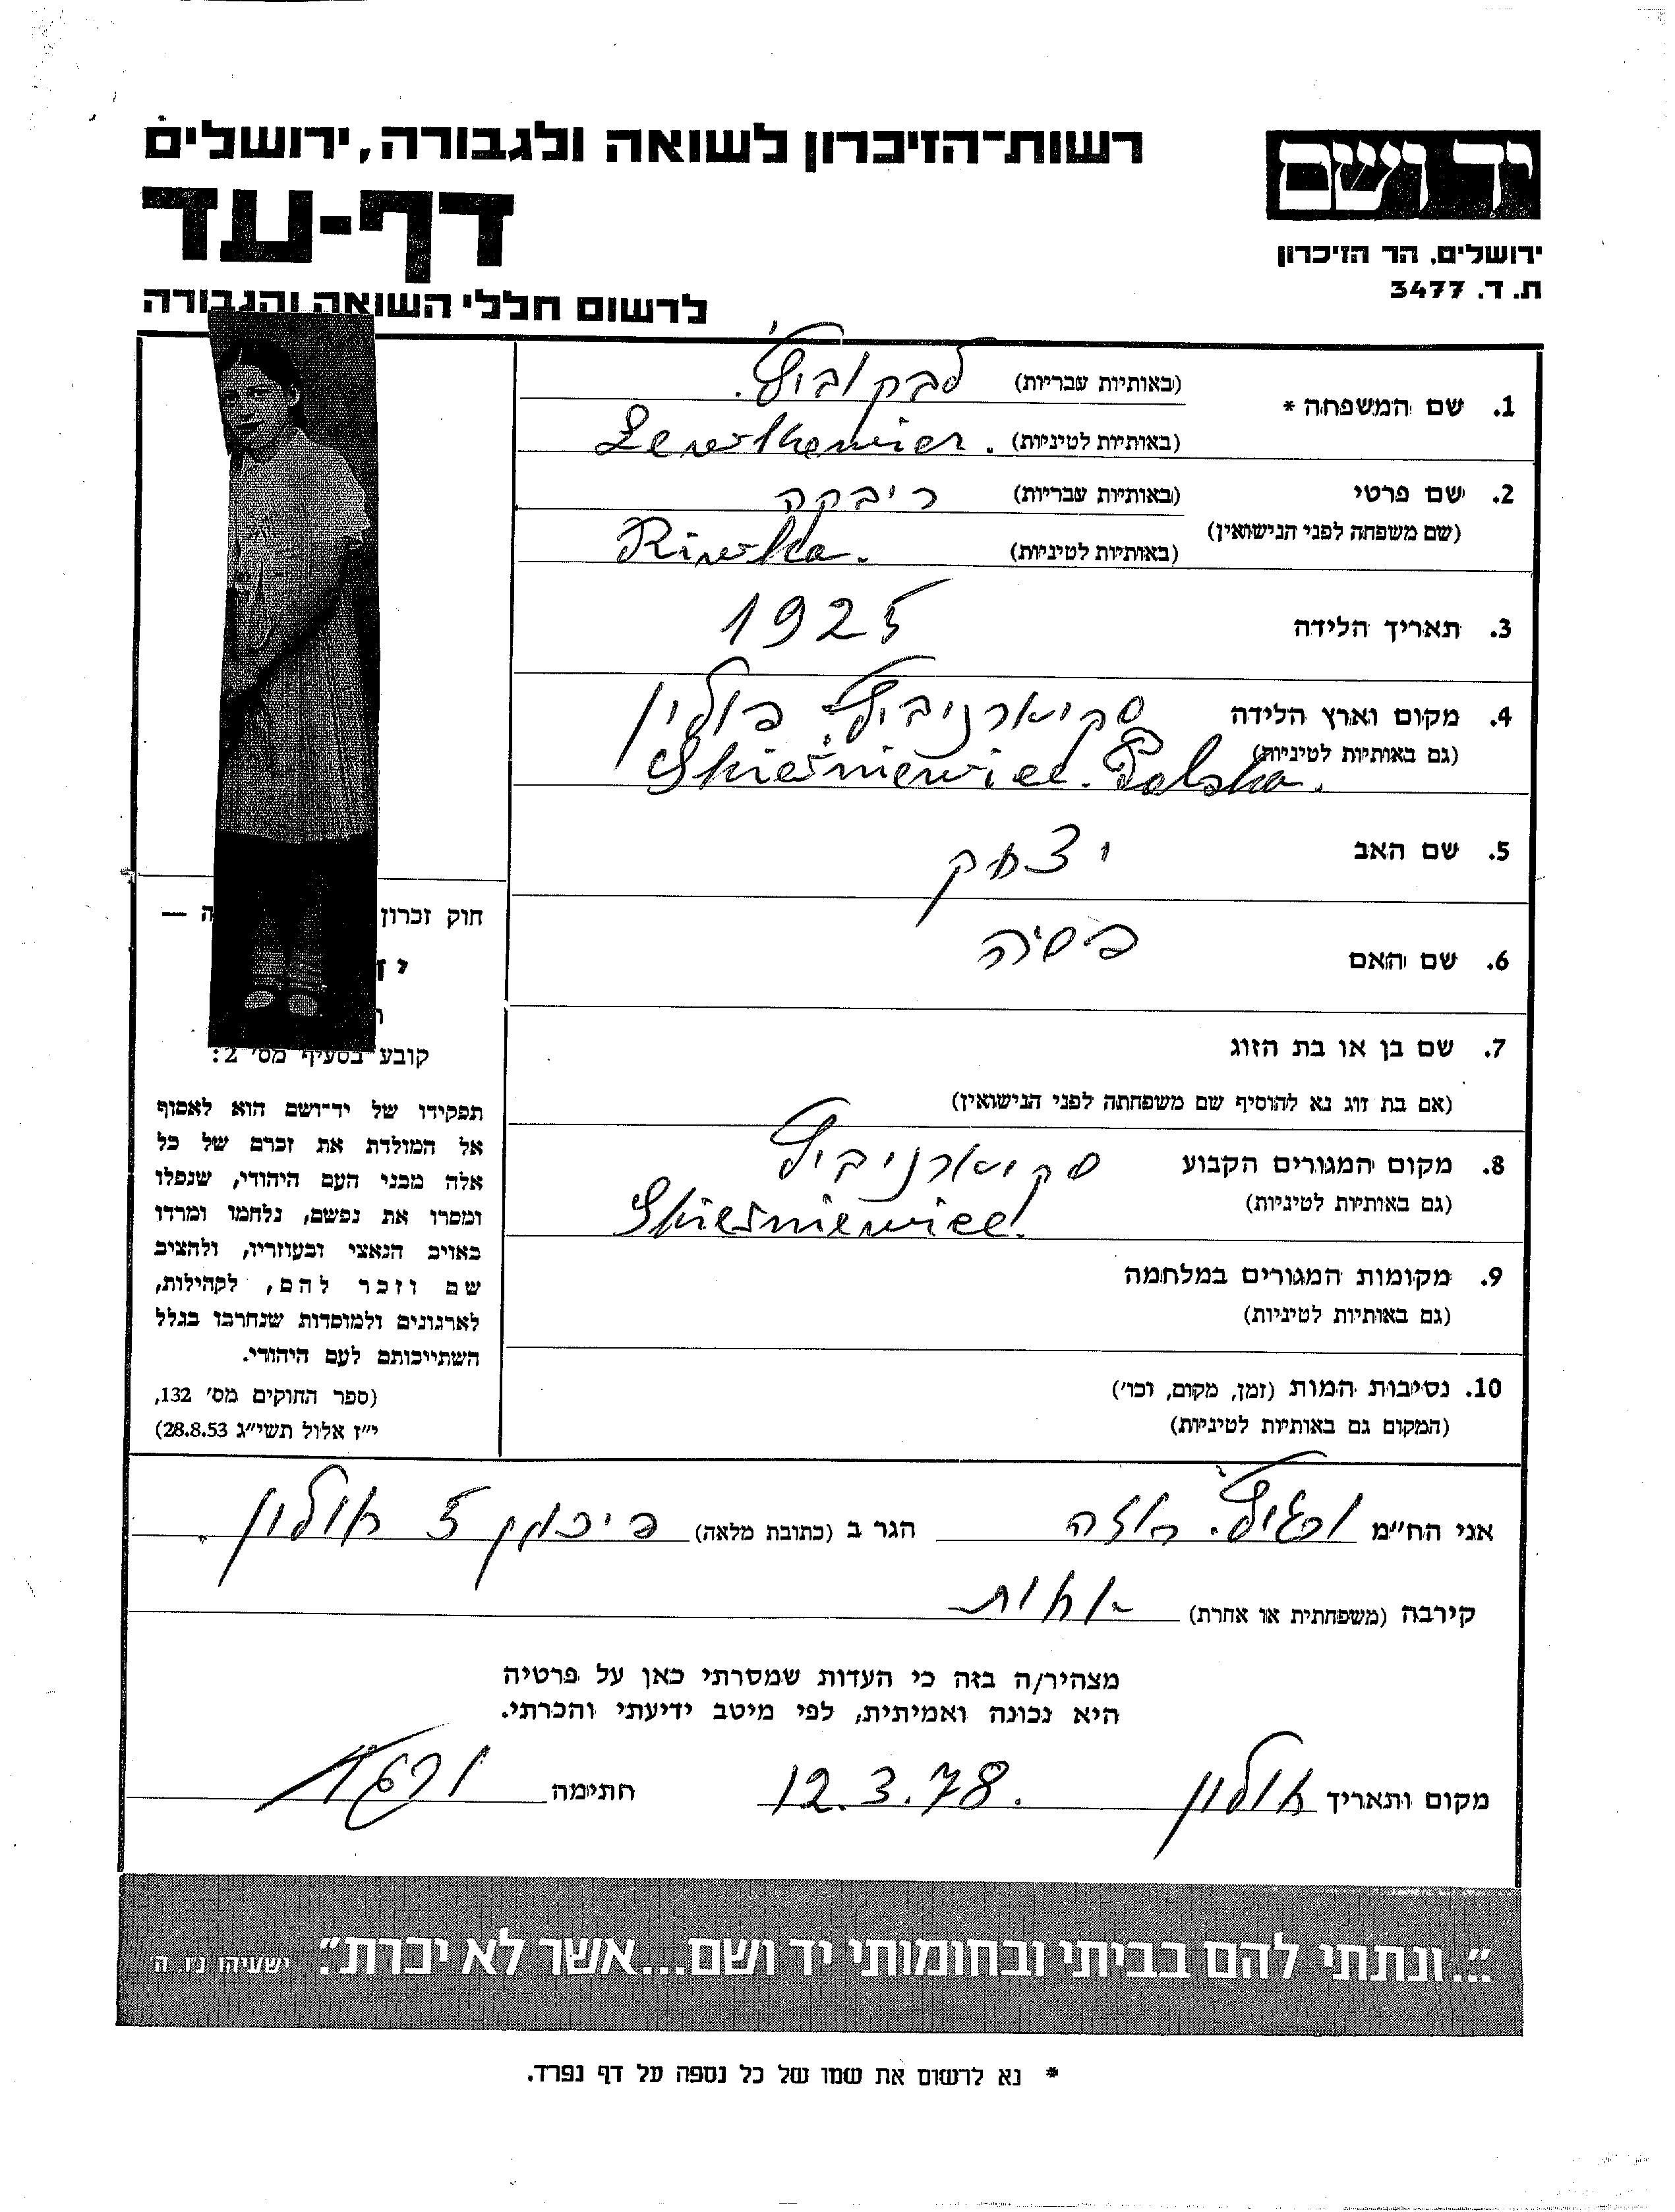 יד ושם
ירושלים, הר הזיכרון
ת. ד. 3477
רשות־הזיכרון לשואה ולגבורה, ירושלים
דף-עד
לרשום חללי השואה והגבורה
1. שם המשפחה *
(באותיות עבריות) לבקוביץ'.
(באותיות לטיניות) Lewkowicz.
2. שם פרטי
(שם משפחה לפני הנישואין)
(באותיות עבריות) ריבקה
(באותיות לטיניות) Riwka.
3. תאריך הלידה 1925
4. מקום וארץ הלידה סקיארניביץ פולין
(גם באותיות לטיניות) Skierniewice. Polska.
5. שם האב יצחק
6. שם האם פסיה
7. שם בן או בת הזוג
(אם בת זוג נא להוסיף שם משפחתה לפני הנישואין)
8. מקום המגורים הקבוע סקיארניביץ
(גם באותיות לטיניות) Skierniewice.
9. מקומות המגורים במלחמה
(גם באותיות לטיניות)
10. נסיבות המות (זמן, מקום, וכו')
(המקום גם באותיות לטיניות)
חוק זכרון
ה —
קובע בסעיף מס' 2:
תפקידו של יד־ושם הוא לאסוף
אל המולדת את זכרם של כל
אלה מבני העם היהודי, שנפלו
ומסרו את נפשם, נלחמו ומרדו
באויב הנאצי ובעוזריו, ולהציב
שם וזכר להם, לקהילות,
לארגונים ולמוסדות שנחרבו בגלל
השתייכותם לעם היהודי.
(ספר החוקים מס' 132,
י"ז אלול תשי"ג 28.8.53)
אני הח"מ הגר ב (כתובת מלאה) 5 חולון.
קירבה (משפחתית או אחרת) אחות
מצהיר/ה בזה כי העדות שמסרתי כאן על פרטיה
היא נכונה ואמיתית, לפי מיטב ידיעתי והכרתי.
מקום ותאריך חולון 12.3.78. חתימה
"...ונתתי להם בביתי ובחומותי יד ושם...אשר לא יכרת". ישעיהו נ"ו. ה'
* נא לרשום את שמו של כל נספה על דף נפרד.